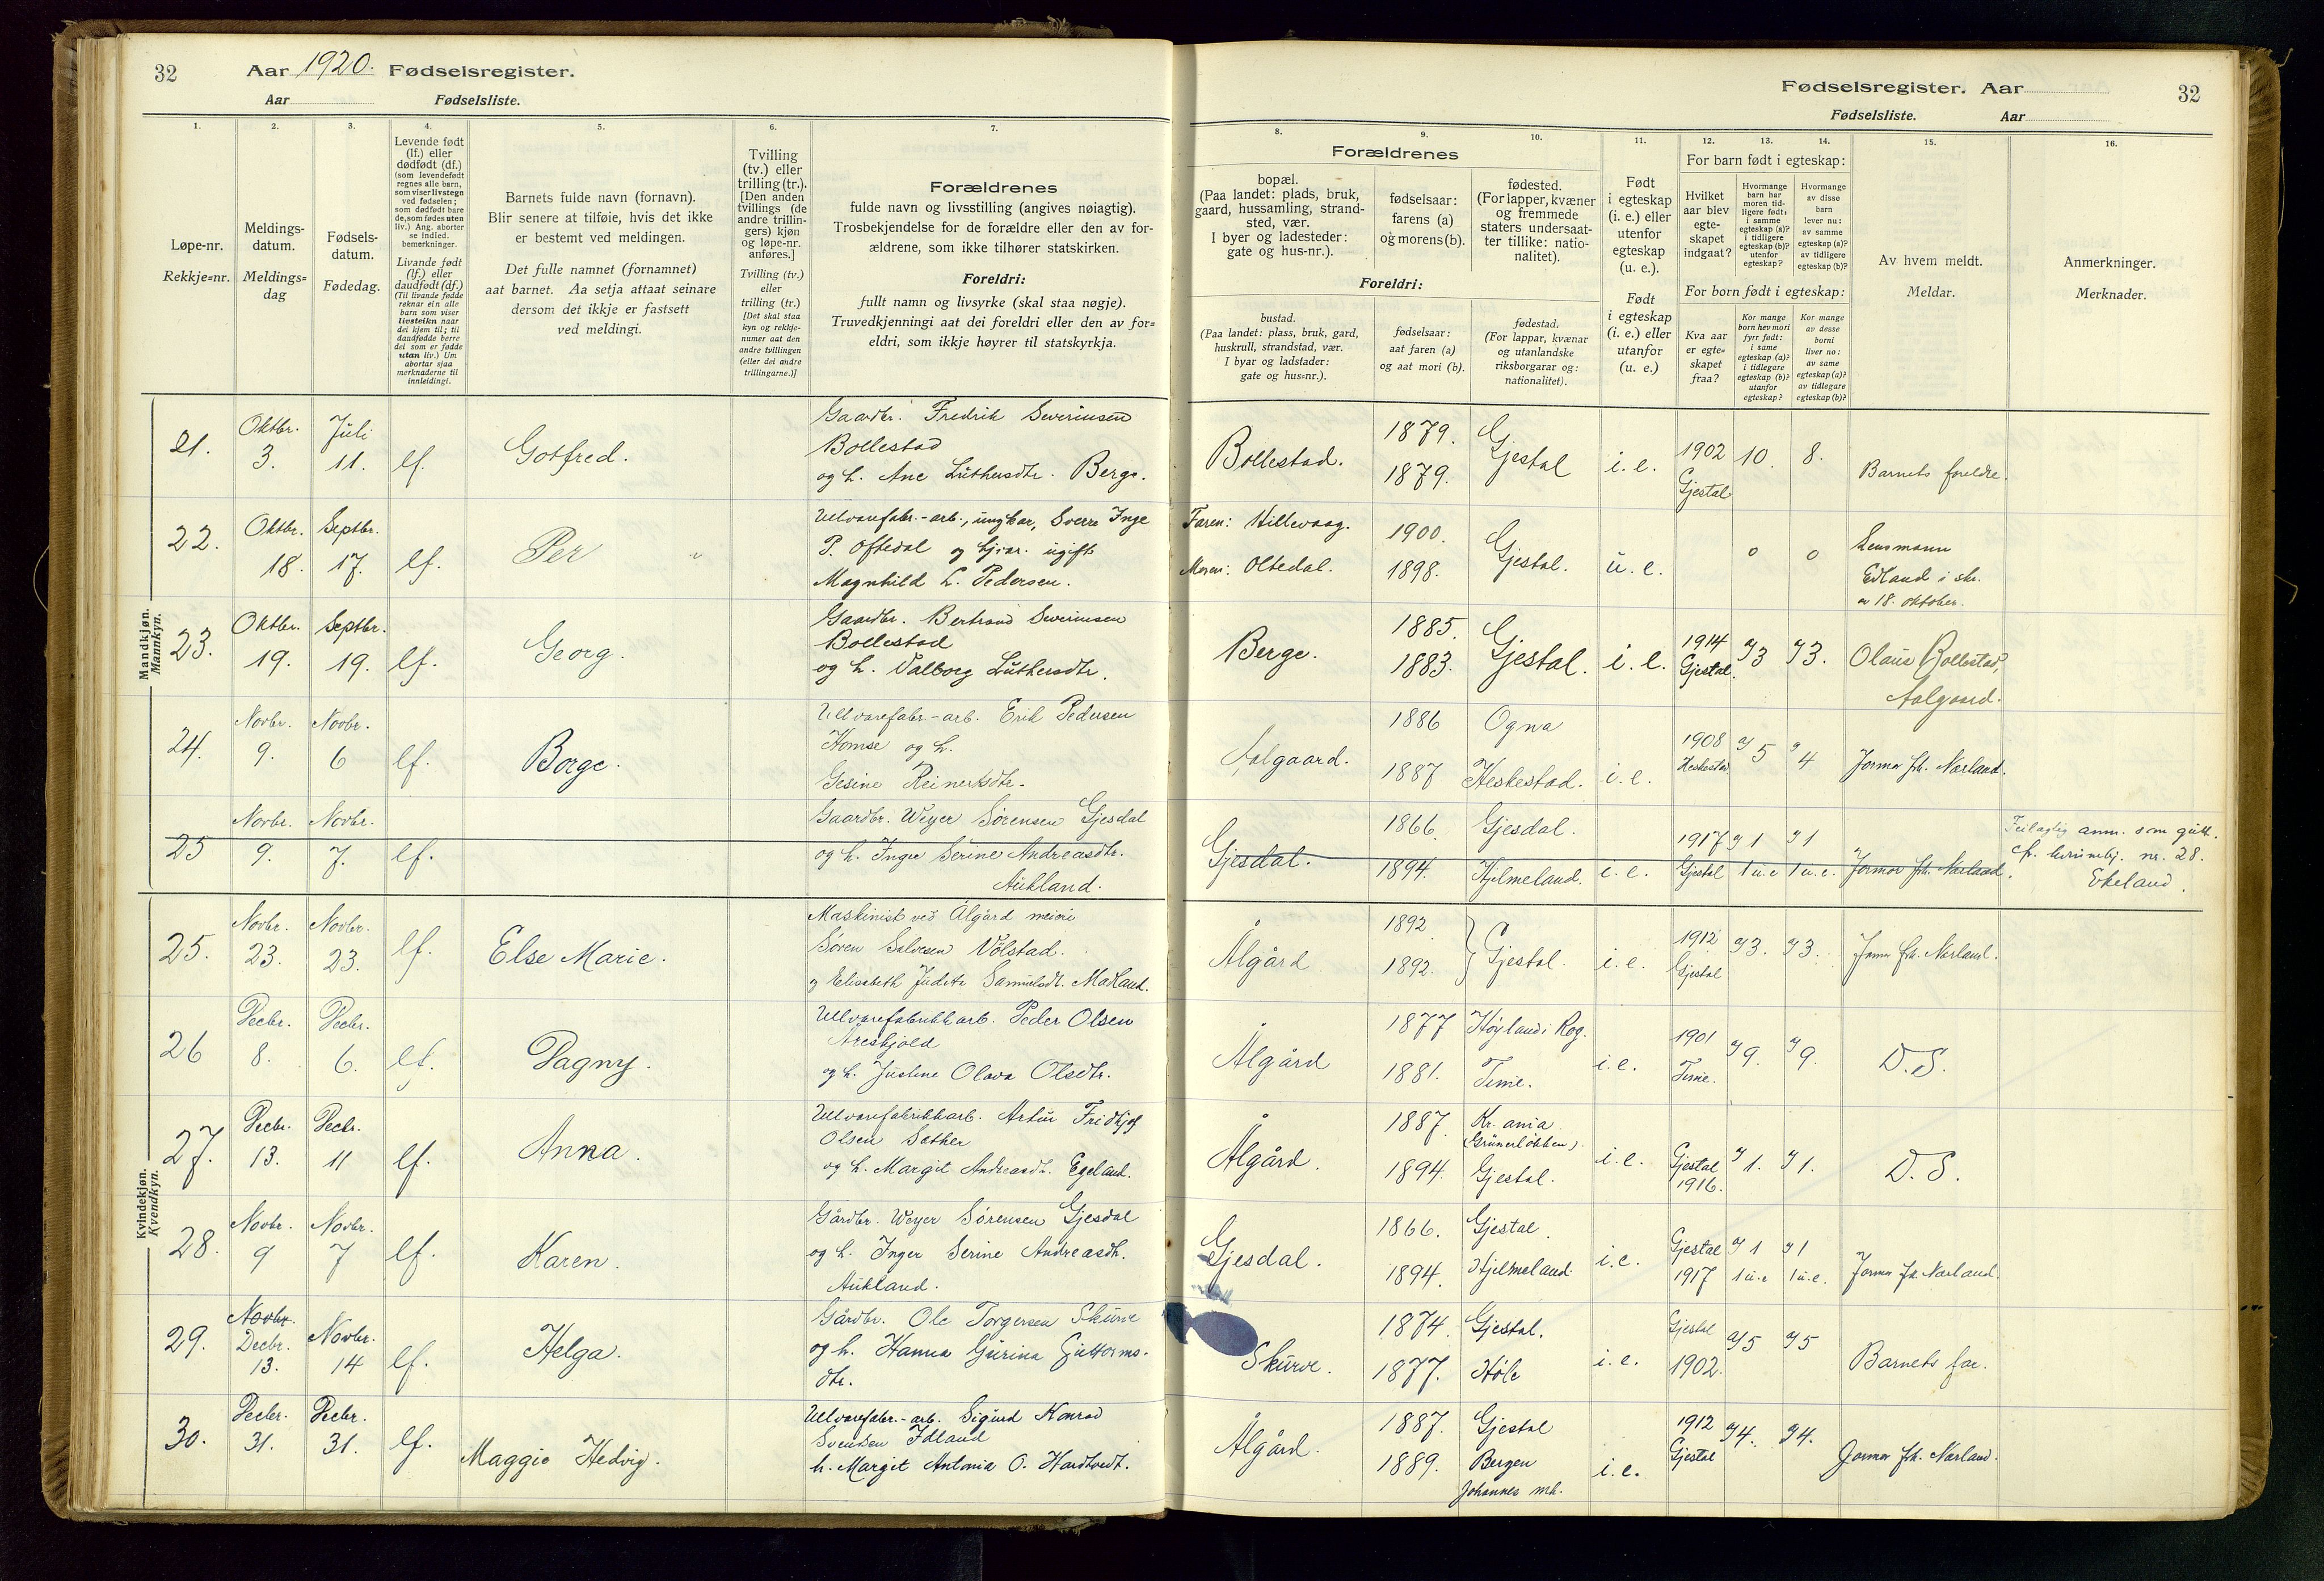 32 Aar 1920. Fødselsregister.
Aar Fødselsliste.
Fødselsregister. Aar 32
Fødselsliste. Aar
1. 2. 3. 4. 5. 6. 7. 8. 9. 10. 11. 12. 13. 14. 15. 16.
Løpe-nr.
Rekkje=nr.
Meldings-
datum.
Meldings=
dag
Fødsels-
datum.
Fødedag.
Levende født
(lf.) eller
dødfødt (df.)
(som levendefødt
regnes alle barn,
som viser livstegn
ved fødselen;
som dødfødt bare
de, som fødes uten
liv.) Ang. aborter
se indled.
bemerkninger.
Livande født
(lf.) eller
daudfødt (df.)
(Til livande fødde
reknar ein alle
barn som viser
livsteikn naar
dei kjem til; til
daudfødde berre
dei som er fødde
utan liv.) Um
abortar sjaa
merknaderne til
innleidingi.
Barnets fulde navn (fornavn).
Blir senere at tilføie, hvis det ikke
er bestemt ved meldingen.
Det fulle namnet (fornamnet)
aat barnet. Aa setja attaat seinare
dersom det ikkje er fastsett
ved meldingi.
Tvilling
(tv.) eller
trilling (tr.).
[Den anden
tvillings (de
andre trillin-
gers) kjøn
og løpe-nr.
anføres.]
Tvilling (tv.)
eller
trilling (tr.)
[Det skal staa
kyn og rekkje-
numer aat den
andre tvillingen
(eller dei andre
trillingarne.)]
Forældrenes
fulde navn og livsstilling (angives nøiagtig).
Trosbekjendelse for de forældre eller den av for-
ældrene, som ikke tilhører statskirken.
Foreldri:
fullt namn og livsyrke (skal staa nøgje).
Truvedkjenningi aat dei foreldri eller den av for=
eldri, som ikkje høyrer til statskyrkja.
Forældrenes
bopæl.
(Paa landet: plads, bruk,
gaard, hussamling, strand-
sted, vær.
I byer og ladesteder:
gate og hus-nr.).
fødselsaar:
farens (a)
og morens (b).
fødested.
(For lapper, kvæner
og fremmede
staters undersaat-
ter tillike: natio-
nalitet).
Foreldri:
bustad.
(Paa landet: plass, bruk, gard,
huskrull, strandstad, vær.
I byar og ladstader:
gate og hus=nr.).
fødselsaar:
aat faren (a)
og aat mori (b).
fødestad.
(For lappar, kvænar
og utanlandske
riksborgarar og:
nationalitet).
Født
i egteskap
(i. e.) eller
utenfor
egteskap
(u. e.).
Født
i egteskap
(i. e.) eller
utanfor
(u. e.)
For barn født i egteskap:
Hvilket
aar blev
egte-
skapet
indgaat?
Hvormange
barn har
moren tid-
ligere født:
i samme
egteskap (a)?
i tidligere
egteskap (b)?
utenfor
egteskap?
Hvormange
av disse
barn
lever nu:
av samme
egteskap (a)?
av tidligere
egteskap (b)?
For born født i egteskap:
Kva aar
er egte=
skapet
fraa?
Kor mange
born hev mori
fyrr født:
i same
egteskap (a)?
i tidlegare
egteskap (b)?
utanfor
egteskap?
Kor mange
av desse
borni
liver no:
av same
egteskap (a)?
av tidlegare
egteskap (b)?
Av hvem meldt.
Meldar.
Anmerkninger.
Merknader.
Mandkjøn.
Mannkyn.
21. Oktbr. 3. Juli 11. lf. Gotfred.
Gaardbr. Fredrik Severinsen
Bollestad
og h. Ane Luthersdtr. Berge.
Bollestad. 1879. 1879. Gjestal i. e. 1902 Gjestal 10. 8. Barnets foreldre.
22. Oktbr. 18. Septbr. 17. lf. Per
Ulvarefabr.-arb., ungkar, Sverre Inge
P. Oftedal og tjiar. ugift
Magnhild L. Pedersen.
Faren: Hillevaag. 1900.
Moren: Oltedal. 1898. Gjestal. u. e. 0 0
Lensmann
Edland i skr.
av 18. oktober.
23. Oktbr. 19. Septbr. 19. lf. Georg.
Gaardbr. Bertrand Severinsen
Bollestad
og h. Valborg Luthersdtr.
Berge. 1885. 1883. Gjestal. i. e. 1914 Gjestal. a) 3 a) 3.
Olaus Bollestad,
Aalgaard.
24. Novbr. 9. Novbr. 6 lf. Borge.
Ullvarefabr.-arb. Erik Pedersen
Homse og h.
Gesine Reinertsdtr.
Aalgaard. 1886 Ogna
1887 Heskestad. i. e. 1908 Heskestad a) 5 a) 4 Jormor frk. Nærland.
25 Novbr. 9. Novbr. 7. lf.
Gaardbr. Weyer Sørensen Gjesdal
og h. Inger Serine Andreasdtr.
Aukland.
Gjesdal. 1866. Gjesdal.
1894. Hjelmeland. i. e. 1917 Gjestal a) 1 1 u. e a) 1 1 u. e. Jormor frk. Nærland.
Feilagtig anm. som gutt.
cfr. kvinnekj. nr. 28.
Ekeland.
Kvindekjøn.
Kvendkyn.
25. Novbr. 23. Novbr. 23. lf. Else Marie.
Maskinist ved Ålgård meieri
Søren Salvesen Vølstad.
og Elisabeth Judita Samuelsdt. Madland.
Ålgård 1892 1892. Gjestal. i. e. 1912 Gjestal a) 3. a) 3. Jormor frk. Nærland.
26 Decbr. 8. Decbr. 6. lf. Dagny.
Ullvarefabrikkarb. Peder Olsen
Areskjold
og h. Justine Olava Olsdtr.
Ålgård 1877 Høyland i Rog.
1881. Time. i. e. 1901 Time. a) 9. a) 9. D. S.
27. Decbr. 13. Decbr. 11 lf. Anna.
Ullvarefabrikkarb. Artur Fridtjof
Olsen Sæther
og h. Margit Andreasdt. Egeland.
Ålgård. 1887. Kr.ania
(Grünerløkken).
1894. Gjestal. i. e. Gjestal 1916. a) 1. a) 1. D. S.
28. Novbr. 9 Novbr. 7 lf. Karen.
Gårdbr. Weyer Sørensen Gjesdal
og h. Inger Serine Andreasdt.
Aukland.
Gjesdal. 1866. Gjestal.
1894. Hjelmeland. i. e. Gjestal 1917 a) 1 1 u. e a) 1 1 u. e. Jormor frk. Nærland.
29. Novbr. Decbr. 13. Novbr. 14 lf. Helga.
Gårdbr. Ole Torgersen Skurve
og h. Hanna Gurina Guttorms-
dtr.
Skurve. 1874. Gjestal.
1877. Høle i. e. Gjestal 1902. a) 5 a) 5 Barnets far.
30. Decbr. 31. Decbr. 31. lf. Maggie Hedvig.
Ullvarefabr.-arb. Sigurd Konrad
Svendsen Edland
h. Margit Antonia O. Hardtvedt.
Ålgård. 1887. Gjestal
1889. Bergen
Johannes mh. i. e. 1912 Gjestal a) 4. a) 4. Jormor frk. Nærland.